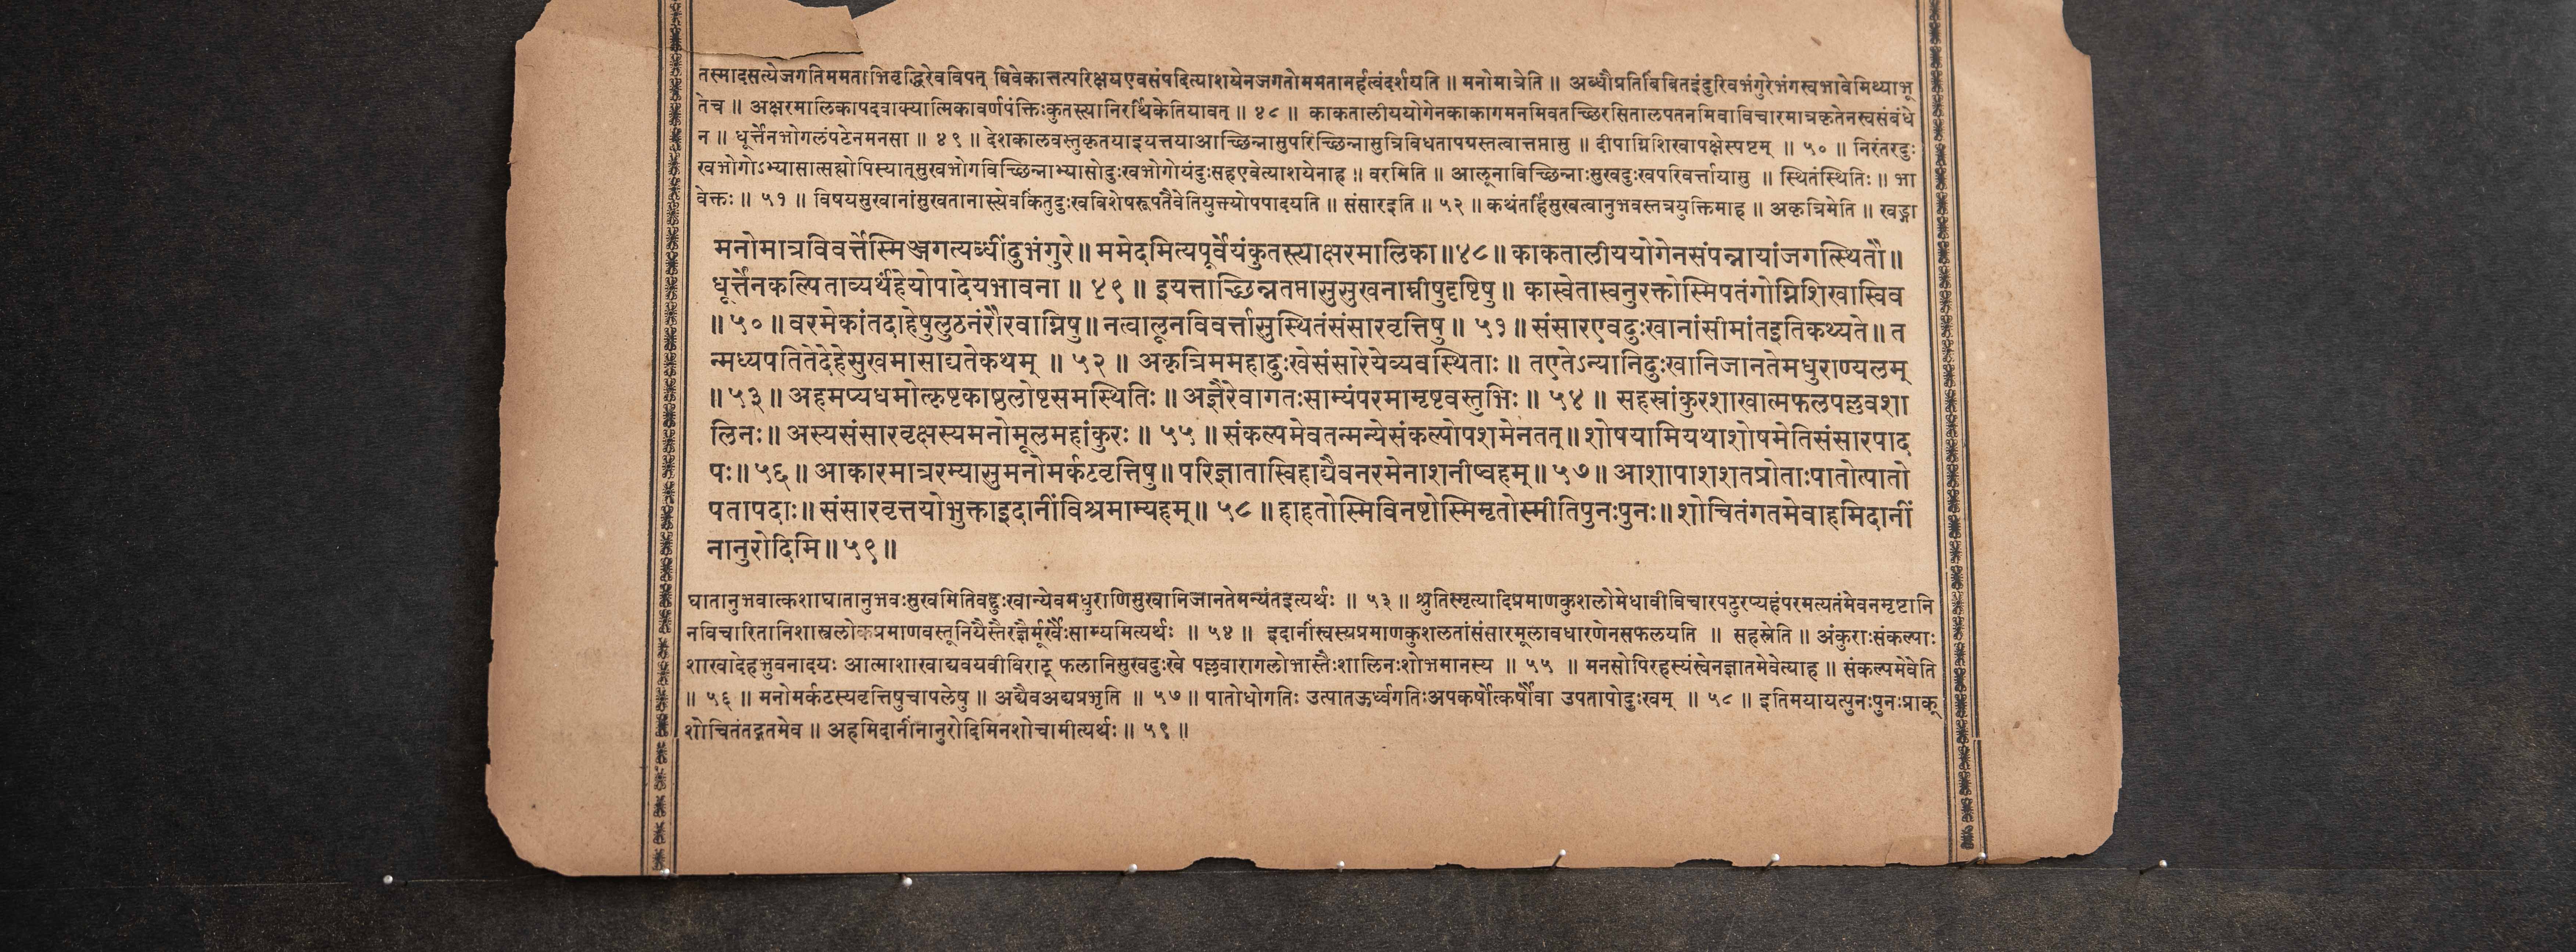 तस्मादसत्येजगतिममताभिवृद्धिरेवविपत् विवेकात्तत्परिक्षयएवसंपदित्याशयेनजगतोममतानर्हत्वंदर्शयति ॥ मनोमात्रेति ॥ अब्धौप्रतिबिंबितइंदुरिवभंगुरेभंगस्वभावेमिथ्याभू
तेच ॥ अक्षरमालिकापदवाक्यात्मिकावर्णपंक्तिःकुतस्त्यानिरर्थिकेतियावत् ॥ ४८ ॥ काकतालीययोगेनकाकागमनमिवतच्छिरसितालपतनमिवाविचारमात्रकृतेनस्वसंबंधे
न ॥ धूर्त्तेनभोगलंपटेनमनसा ॥ ४९ ॥ देशकालवस्तुकृतयाइयत्तयाआच्छिन्नासुपरिच्छिन्नासुत्रिविधतापग्रस्तत्वात्तप्तासु ॥ दीपाग्निशिखापक्षेस्पष्टम् ॥ ५० ॥ निरंतरदुः
खभोगोऽभ्यासात्सह्योपिस्यात्सुखभोगविच्छिन्नाभ्यासोदुःखभोगोयंदुःसहएवेत्याशयेनाह ॥ वरमिति ॥ आलूनाविच्छिन्नाःसुखदुःखपरिवर्त्तायासु ॥ स्थितंस्थितिः ॥ भा
वेक्तः ॥ ५१ ॥ विषयसुखानांसुखतानास्त्येवकिंतुदुःखविशेषरूपतैवेतियुक्तयोपपादयति ॥ संसारइति ॥ ५२ ॥ कथंतर्हिसुखत्वानुभवस्तत्रयुक्तिमाह ॥ अकृत्रिमेति ॥ खड्गा
मनोमात्रविवर्त्तेस्मिञ्जगत्यब्धींदुभंगुरे॥ ममेदमित्यपूर्वेयंकुतस्त्याक्षरमालिका॥४८॥ काकतालीययोगेनसंपन्नायांजगत्स्थितौ॥
धूर्त्तेनकल्पिताव्यर्थहेयोपादेयभावना ॥ ४९ ॥ इयत्ताच्छिन्नतप्तासुसुखनाम्नीषुदृष्टिषु॥ कास्वेतास्वनुरक्तोस्मिपतंगोग्निशिखास्विव
॥५०॥ वरमेकांतदाहेषुलुठनंरौरवाग्निषु॥ नत्वालूनविवर्त्तासुस्थितंसंसारवृत्तिषु॥ ५१॥ संसारएवदुःखानांसीमांतइतिकथ्यते॥ त
न्मध्यपतितेदेहेसुखमासाद्यतेकथम् ॥ ५२ ॥ अकृत्रिममहादुःखेसंसारेयेव्यवस्थिताः॥ तएतेऽन्यानिदुःखानिजानतेमधुराण्यलम्
॥५३॥ अहमप्यधमोत्कृष्टकाष्ठलोष्टसमस्थितिः॥ अज्ञैरेवागतःसाम्यंपरमामृष्टवस्तुभिः॥ ५४ ॥ सहस्रांकुरशाखात्मफलपल्लवशा
लिनः॥ अस्यसंसारवृक्षस्यमनोमूलमहांकुरः॥ ५५ ॥ संकल्पमेवतन्मन्येसंकल्पोपशमेनतत्॥ शोषयामियथाशोषमेतिसंसारपाद
पः॥५६॥ आकारमात्ररम्यासुमनोमर्कटवृत्तिषु॥ परिज्ञातास्विहाद्यैवनरमेनाशनीष्वहम्॥ ५७॥ आशापाशशतप्रोताःपातोत्पातो
पतापदाः॥ संसारवृत्तयोभुक्ताइदानींविश्रमाम्यहम्॥ ५८ ॥ हाहतोस्मिविनष्टोस्मिमृतोस्मीतिपुनःपुनः॥ शोचितंगतमेवाहमिदानीं
नानुरोदिमि॥ ५९॥
घातानुभवात्कशाघातानुभवःसुखमितिवद्दुःखान्येवमधुराणिसुखानिजानतेमन्यंतइत्यर्थः ॥ ५३ ॥ श्रुतिस्मृत्यादिप्रमाणकुशलोमेधावीविचारपटुरप्यहंपरमत्यंतमेवनमृष्टानि
नविचारितानिशास्त्रलोकप्रमाणवस्तूनियैस्तैरज्ञैर्मूर्खैःसाम्यमित्यर्थः ॥ ५४ ॥ इदानींस्वस्यप्रमाणकुशलतांसंसारमूलावधारणेनसफलयति ॥ सहस्रेति ॥ अंकुराःसंकल्पाः
शाखादेहभुवनादयः आत्माशाखाद्यवयवीविराट् फलानिसुखदुःखे पल्लवारागलोभास्तैःशालिनःशोभमानस्य ॥ ५५ ॥ मनसोपिरहस्यंस्वेनज्ञातमेवेत्याह ॥ संकल्पमेवेति
॥ ५६ ॥ मनोमर्कटस्यवृत्तिषुचापलेषु ॥ अद्यैवअद्यप्रभृति ॥ ५७ ॥ पातोधोगतिः उत्पातऊर्ध्वगतिःअपकर्षोत्कर्षौवा उपतापोदुःखम् ॥ ५८ ॥ इतिमयायत्पुनःपुनःप्राक्
शोचितंतद्गतमेव ॥ अहमिदानींनानुरोदिमिनशोचामीत्यर्थः ॥ ५९ ॥